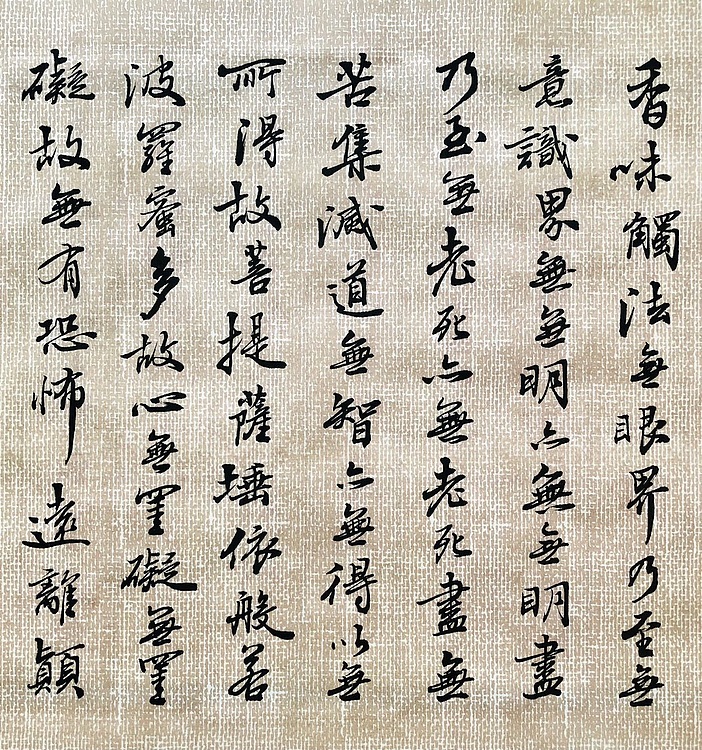 香味觸法無眼界乃至無
意識界無無明亦無無明盡
乃至無老死亦無老死盡無
苦集滅道無智亦無得以無
所得故菩提薩埵依般若
波羅蜜多故心無罣礙無罣
礙故無有恐怖遠離顛